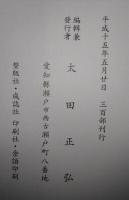 平成十五年五月廿日 三百部刊行
編輯兼
發行者
太田正弘
愛知縣瀬戸市西古瀬戸町八番地
整版社・成認社 印刷社・金諸印刷